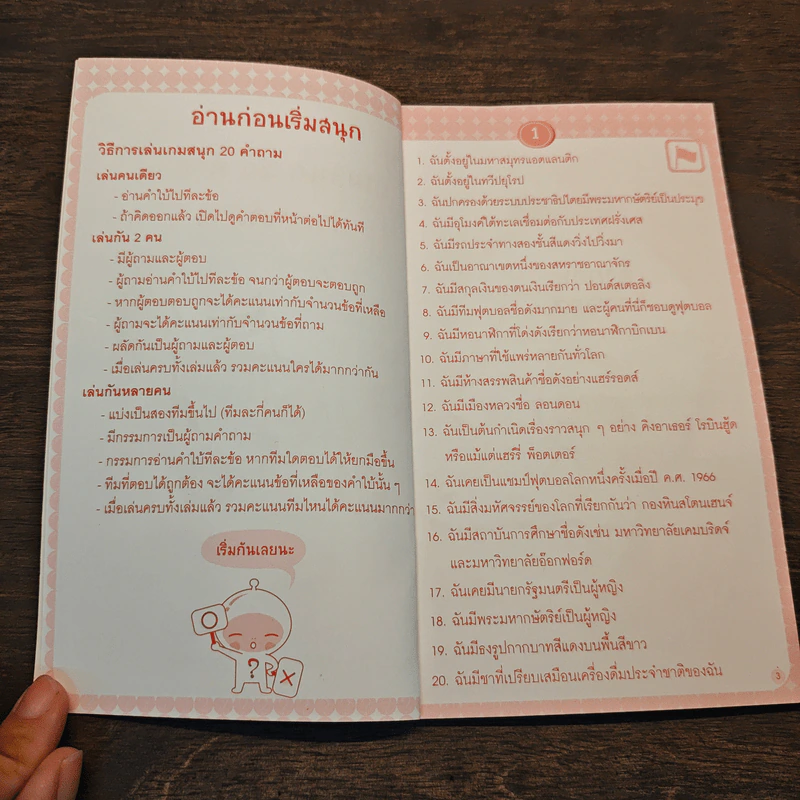 อ่านก่อนเริ่มสนุก
วิธีการเล่นเกมสนุก 20 คำถาม
เล่นคนเดียว
- อ่านคำใบ้ไปทีละข้อ
- ถ้าคิดออกแล้ว เปิดไปดูคำตอบที่หน้าต่อไปได้ทันที
เล่นกัน 2 คน
- มีผู้ถามและผู้ตอบ
- ผู้ถามอ่านคำใบ้ไปทีละข้อ จนกว่าผู้ตอบจะตอบถูก
- หากผู้ตอบตอบถูกจะได้คะแนนเท่ากับจำนวนข้อที่เหลือ
- ผู้ถามจะได้คะแนนเท่ากับจำนวนข้อที่ถาม
- ผลัดกันเป็นผู้ถามและผู้ตอบ
- เมื่อเล่นครบทั้งเล่มแล้ว รวมคะแนนใครได้มากกว่ากัน
เล่นกันหลายคน
- แบ่งเป็นสองทีมขึ้นไป (ทีมละกี่คนก็ได้)
- มีกรรมการเป็นผู้ถามคำถาม
- กรรมการอ่านคำใบ้ทีละข้อ หากทีมใดตอบได้ให้ยกมือขึ้น
- ทีมที่ตอบได้ถูกต้อง จะได้คะแนนข้อที่เหลือของคำใบ้นั้น ๆ
- เมื่อเล่นครบทั้งเล่มแล้ว รวมคะแนนทีมไหนได้คะแนนมากกว่า
เริ่มกันเลยนะ
?
1
1. ฉันตั้งอยู่ในมหาสมุทรแอตแลนติก
2. ฉันตั้งอยู่ในทวีปยุโรป
3. ฉันปกครองด้วยระบบประชาธิปไตยมีพระมหากษัตริย์เป็นประมุข
4. ฉันมีอุโมงค์ใต้ทะเลเชื่อมต่อกับประเทศฝรั่งเศส
5. ฉันมีรถประจำทางสองชั้นสีแดงวิ่งไปวิ่งมา
6. ฉันเป็นอาณาเขตหนึ่งของสหราชอาณาจักร
7. ฉันมีสกุลเงินของตนเงินเรียกว่า ปอนด์สเตอลิง
8. ฉันมีทีมฟุตบอลชื่อดังมากมาย และผู้คนที่นี่ก็ชอบดูฟุตบอล
9. ฉันมีหอนาฬิกาที่โด่งดังเรียกว่าหอนาฬิกาบิกเบน
10. ฉันมีภาษาที่ใช้แพร่หลายกันทั่วโลก
11. ฉันมีห้างสรรพสินค้าชื่อดังอย่างแฮร์รอดส์
12. ฉันมีเมืองหลวงชื่อ ลอนดอน
13. ฉันเป็นต้นกำเนิดเรื่องราวสนุก ๆ อย่าง คิงอาเธอร์ โรบินฮู้ด
หรือแม้แต่แฮร์รี่ พ็อตเตอร์
14. ฉันเคยเป็นแชมป์ฟุตบอลโลกหนึ่งครั้งเมื่อปี ค.ศ. 1966
15. ฉันมีสิ่งมหัศจรรย์ของโลกที่เรียกกันว่า กองหินสโตนเฮนจ์
16. ฉันมีสถาบันการศึกษาชื่อดังเช่น มหาวิทยาลัยเคมบริดจ์
และมหาวิทยาลัยอ๊อกฟอร์ด
17. ฉันเคยมีนายกรัฐมนตรีเป็นผู้หญิง
18. ฉันมีพระมหากษัตริย์เป็นผู้หญิง
19. ฉันมีธงรูปกากบาทสีแดงบนพื้นสีขาว
20. ฉันมีชาที่เปรียบเสมือนเครื่องดื่มประจำชาติของฉัน
3